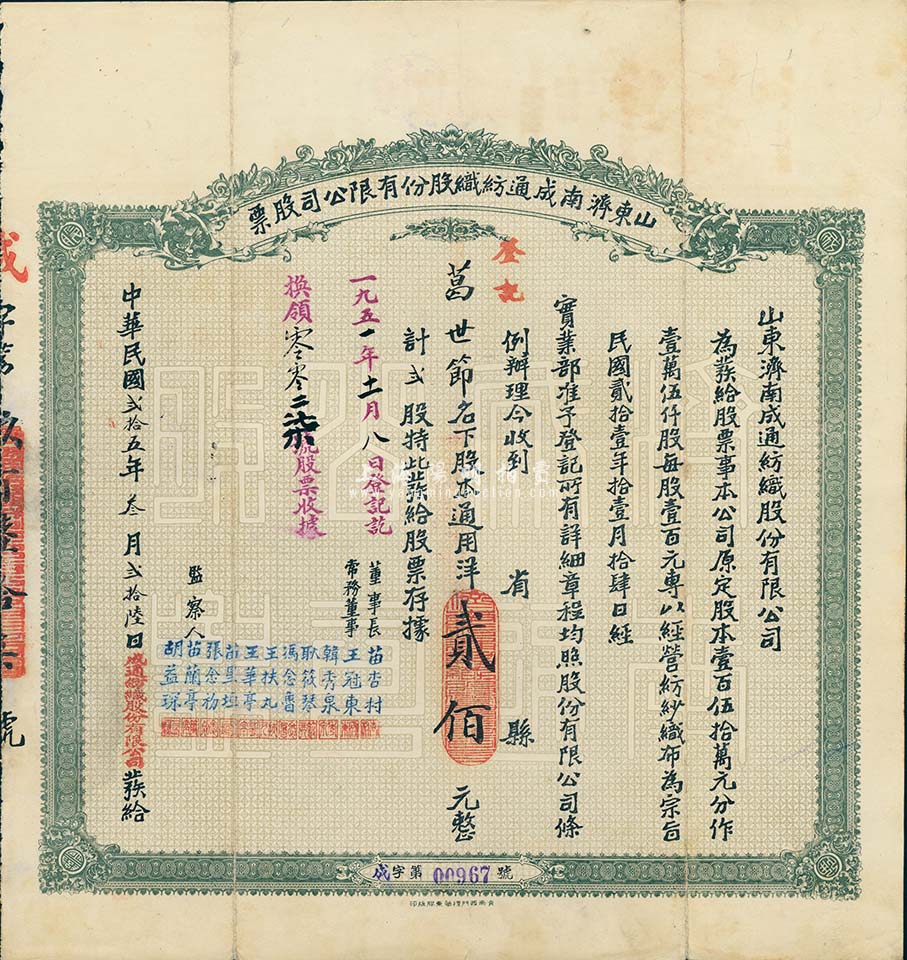 山東濟南成通紡織股份有限公司股票
山東濟南成通紡織股份有限公司
為發給股票事本公司原定股本壹百伍拾萬元分作
壹萬伍仟股每股壹百元專以經營紡紗織布為宗旨
民國貳拾壹年拾壹月拾肆日經
實業部准予登記所有詳細章程均照股份有限公司條
例辦理今收到 省 縣
登記
葛世節名下股本通用洋貳佰元整
計弍股持此發給股票存據
一九五一年十一月八日登記訖
換領零零二柒號股票收據
董事長 苗杏村
常務董事 王冠東
韓秀泉
耿筱琴
馮念魯
王扶九
王華亭
苗星垣
張念劬
監察人 苗蘭亭
胡益琛
中華民國弍拾五年叁月弍拾陸日成通紡織股份有限公司發給
成字第00967號